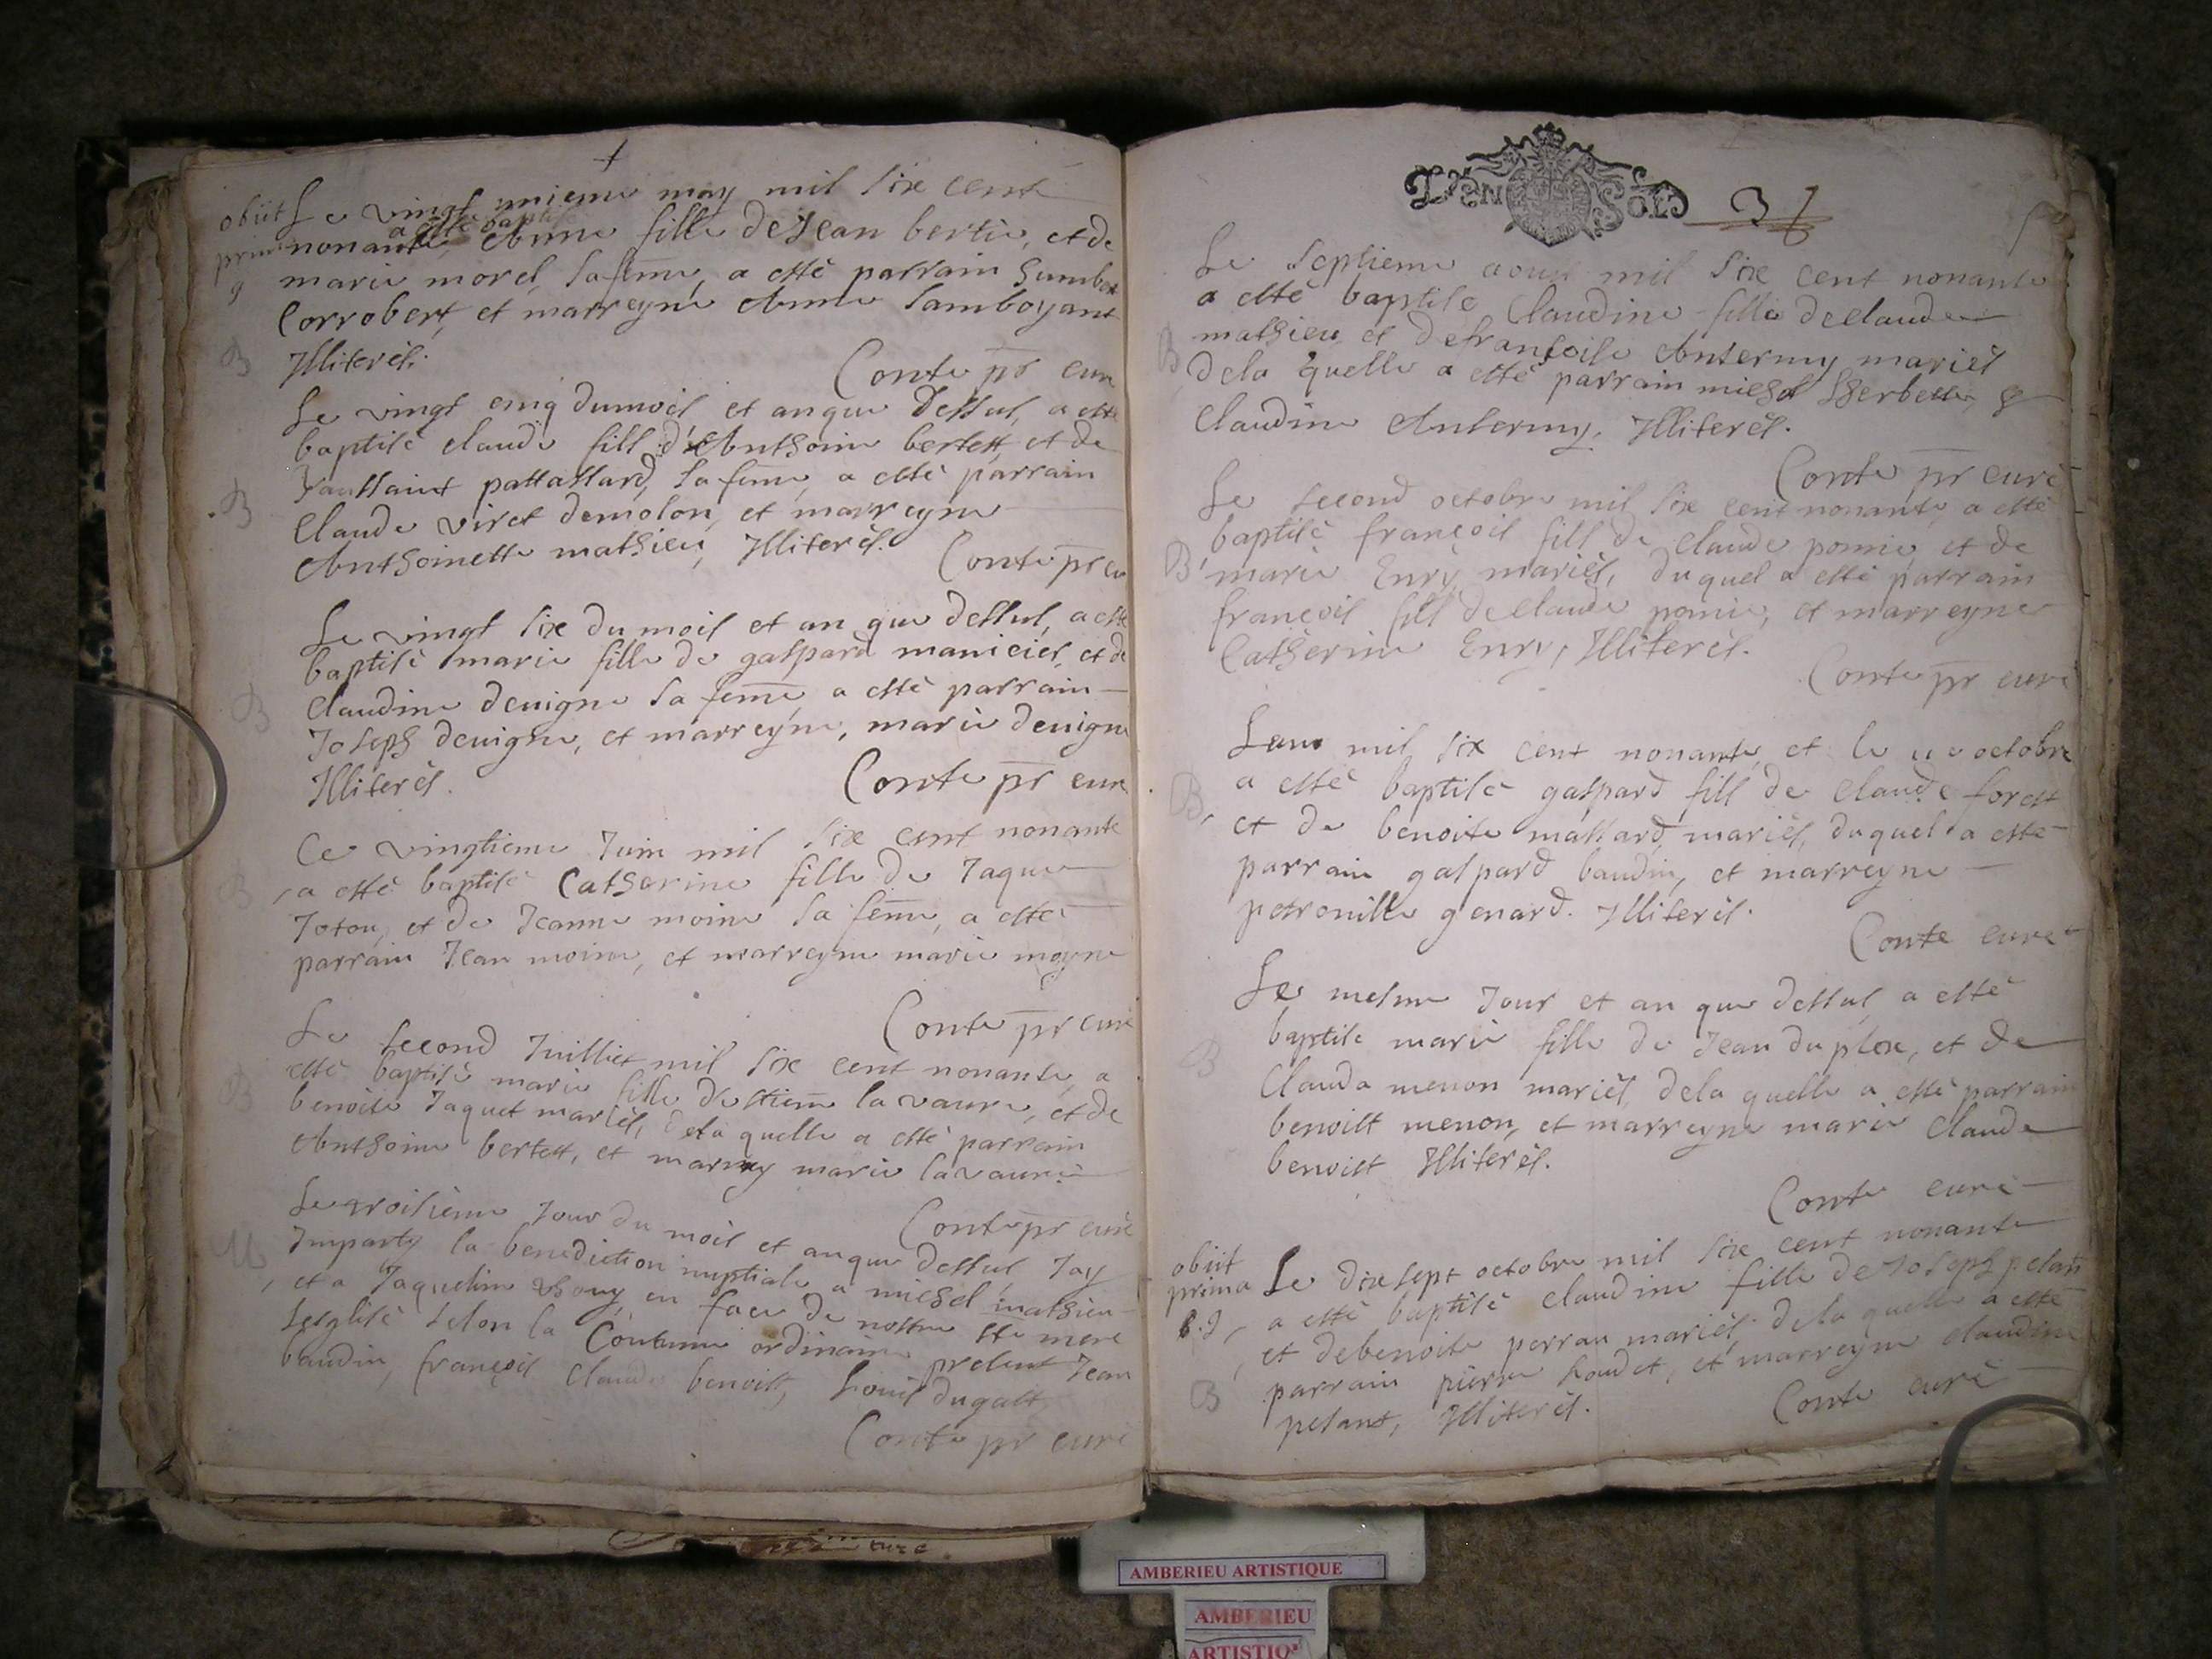 +
obiit Le vingt unieme may mil six cent
a esté baptisé
nonante, Anne fille de Jean bertie, et de
marie morel, sa feme, a esté parrain humber
Corrobert, et marreyne Anne Lamboyant
B Illiterés.
Conte pr curé
Le vingt cinq du mois et an que dessus, a esté
baptisé claude fils d'Anthoine bertet, et de
Toussaint pattallard, sa feme, a esté parrain
B Claude viret de molon, et marreyne
Anthoinette mathieu, Illiterés.
Conte pr cu
Le vingt six du mois et an que dessus, a esté
baptisé marie fille de gaspard manicier, et de
B Claudine deuigne sa feme, a esté parrain
Joseph deuigne, et marreyne, marie deuigne
Illiterés.
Conte pr curé
Ce vingtieme Juin mil six cent nonante
B a esté baptisé Catherine fille de Jaque
Joton, et de Jeanne moine sa feme, a esté
parrain Jean moine, et marreyne marie moyne
Conte pr curé
Le second Juilliet mil six cent nonante, a
B esté baptisé marie fille d'estiene la vaure, et de
benoite Jaquet mariés, de la quelle a esté parrain
Anthoine bertet, et marrey marie lavaure
Conte pr curé
Le troisieme Jour du mois et an que dessus Jay
M Imparty la benediction nuptiale a michel mathieu
et a Jaqueline en face de nostre ste mere
Lesglise selon la Coutume ordinaire present Jean
baudin, françois Claude benoist, Louis dugast
Conte pr curé
VN SOL 31
Le septieme aoust mil six cent nonante
a esté baptisé Claudine fille de claude
mathieu et de françoise Antermy mariés
B de la quelle a esté parrain michel et
Claudine Antermy. Illiterés.
Conte pr curé
Le second octobre mil six cent nonante, a esté
baptisé françois fils de Claude pomie, et de
B marie Enry mariés, duquel a esté parrain
françois fils de Claude pomie, et marreyne
Catherine Enry, Illiterés.
Conte pr curé
Lan mil six cent nonante, et le octobre
B a esté baptisé gaspard fils de claude forest
et de benoite mallard, mariés, duquel a esté
parrain gaspard baudin, et marreyne
petronille genard. Illiterés.
Conte curé
Le mesme Jour et an que dessus, a esté
B baptisé marie fille de Jean duplex, et de
Clauda menon mariés, de la quelle a esté parrain
benoist menon, et marreyne marie Claude
benoist Illiterés.
Conte curé
obiit
prima Le dix sept octobre mil six cent nonante
a esté baptisé claudine fille de Joseph pelant
et de benoite perrau mariés, de la quelle a esté
B parrain pierre, et marreyne claudine
pelant, Illiterés.
Conte curé
AMBERIEU ARTISTIQUE
AMBERIEU
ARTISTIQ